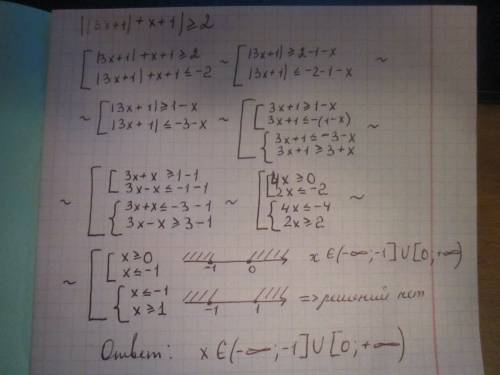 ||3x+1|+x+1|≥2
[ |3x+1|+x+1≥2 |3x+1|+x+1≤-2 ~ [ |3x+1|≥2-1-x |3x+1|≤-2-1-x ~
~ [ |3x+1|≥1-x |3x+1|≤-3-x ~ [ [ 3x+1≥1-x 3x+1≤-(1-x) { 3x+1≤-3-x 3x+1≥3+x ~
~ [ [ 3x+x≥1-1 3x-x≤-1-1 { 3x+x≤-3-1 3x-x≥3-1 ~ [ [ 4x≥0 2x≤-2 { 4x≤-4 2x≥2 ~
~ [ [ x≥0 x≤-1 -1 0 x∈(-∞;-1]∪[0;+∞)
{ x≤-1 x≥1 -1 1 => решений нет
Ответ: x∈(-∞;-1]∪[0;+∞)